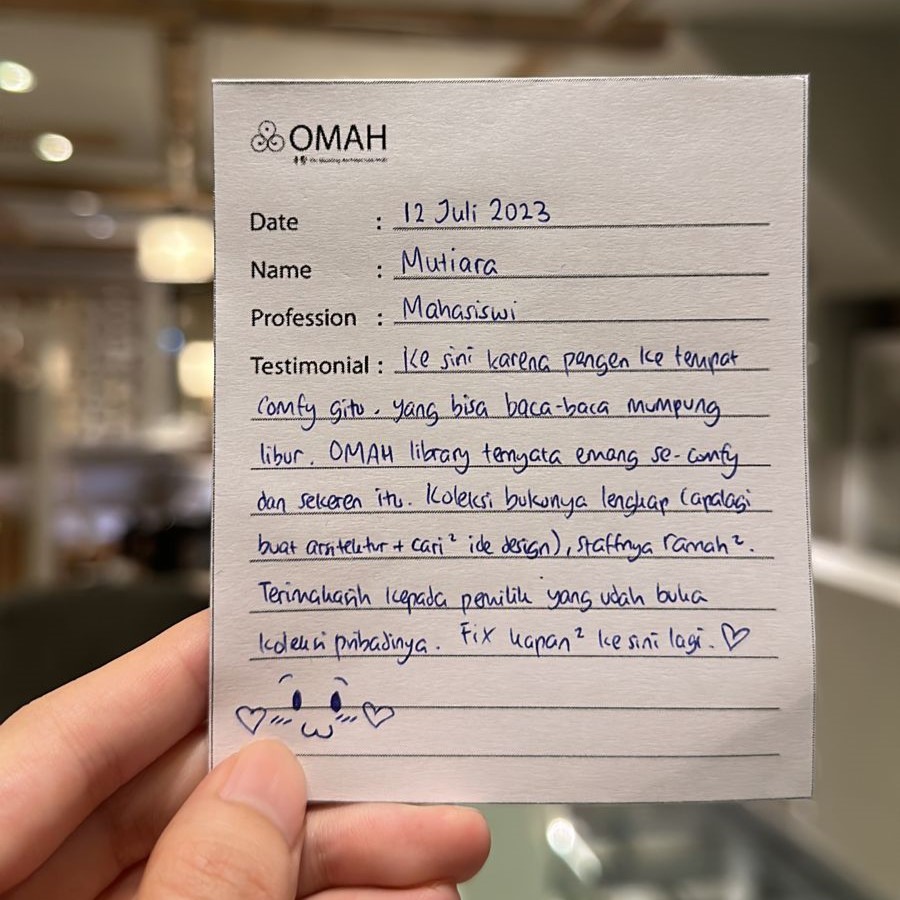 OMAH
Date : 12 Juli 2023
Name : Mutiara
Profession : Mahasiswi
Testimonial : Ke sini karena pengen ke tempat
comfy gitu, yang bisa baca-baca mumpung
libur. OMAH library ternyata emang se-comfy
dan sekeren itu. Koleksi bukunya lengkap (apalagi
buat arsitektur + cari² ide design), staffnya ramah².
Terimakasih kepada pemilik yang udah buka
koleksi pribadinya. Fix kapan² ke sini lagi. ♡